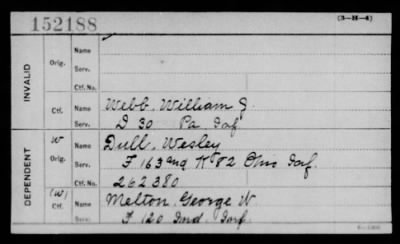 152188 (3-H-4)
INVALID
Orig. Name
Serv.
Ctf. No.
Ctf. Name Webb, William J.
Serv. D 30 Pa Inf.
DEPENDENT
W Orig. Name Dull, Wesley
Serv. F 163 and K 82 Ohio Inf.
Ctf. No. 262380
(W) Ctf. Name Melton, George W.
Serv. F 120 Ind. Inf.